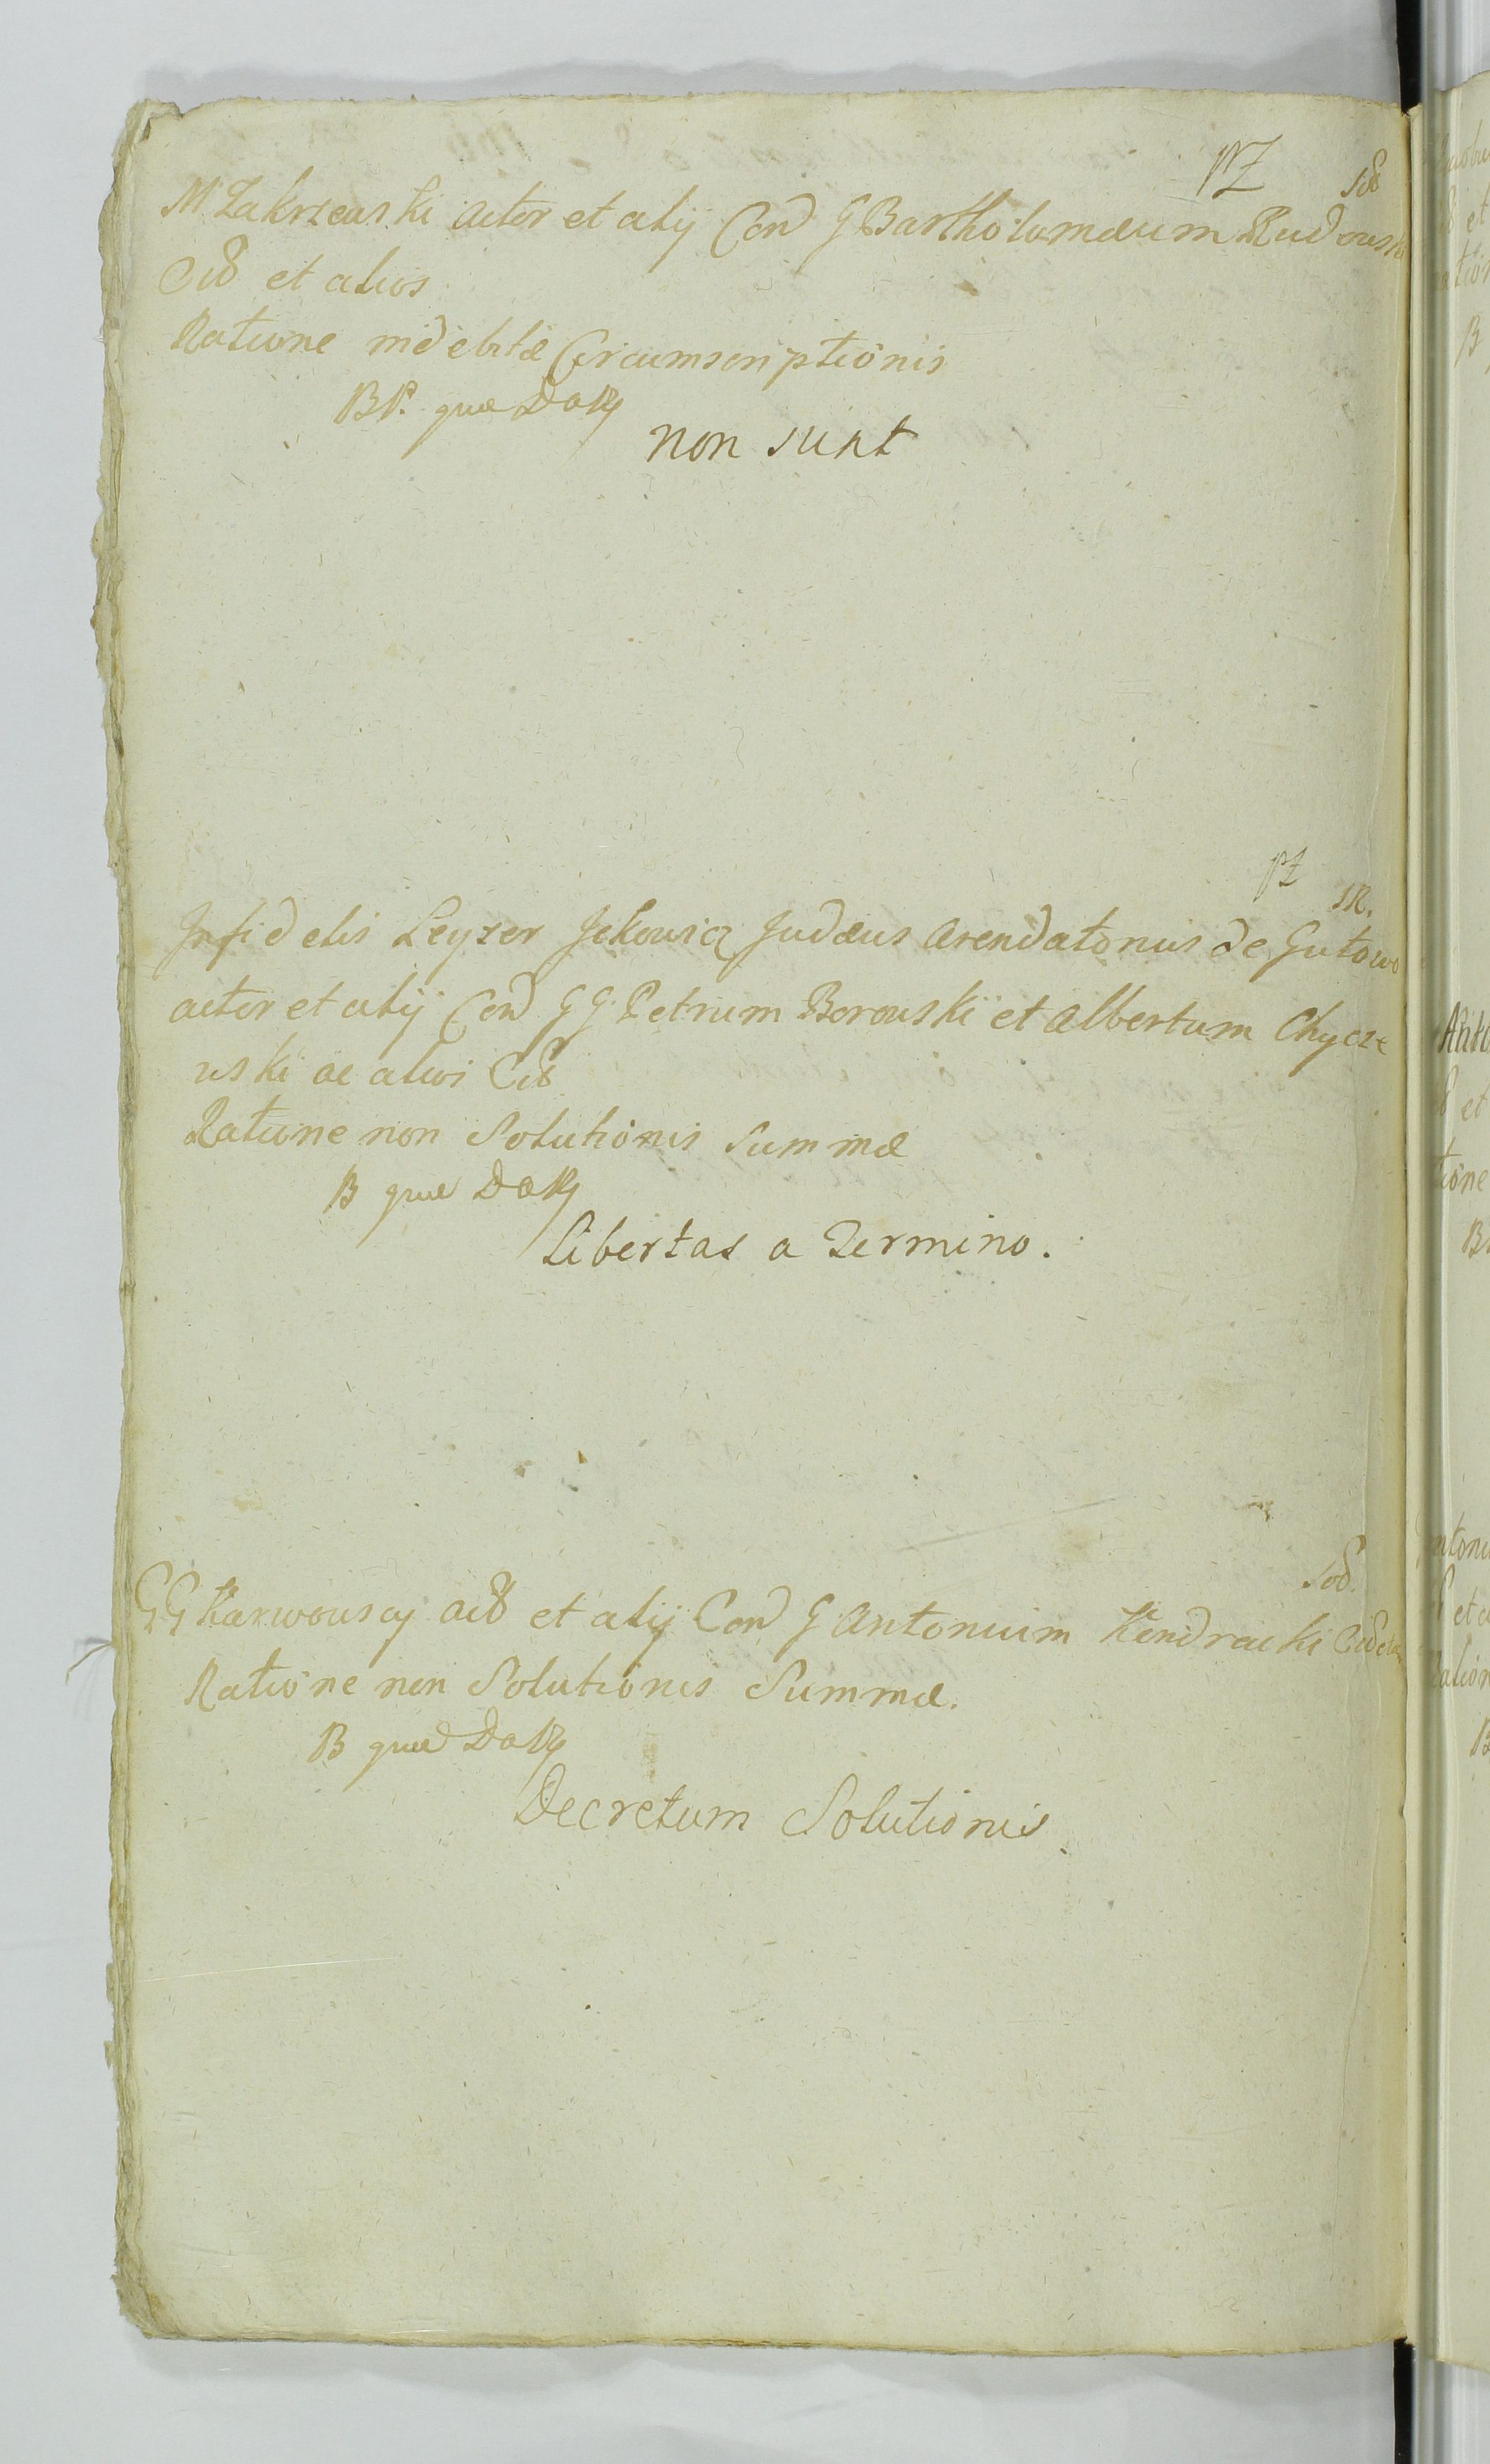 PZ
M Zakrzewski actor et alij Con G Bartholomæum Rudowski
Cit et alios
Ratione indebitæ Circumscriptionis
BP. quæ
non sunt
PZ SR.
Infidelis Leyzer Jekowicz Judæus arendatorius de Gutowo
actor et alij Con GG Petrum Borowski et Albertum Chycze
wski ac alios Cit
Ratione non Solutionis Summæ
B quæ
Libertas a Termino.
GG Karwowscy act et alij Con G Antonium Kendracki Cit
Ratione non Solutionis Summæ.
B quæ
Decretum Solutionis